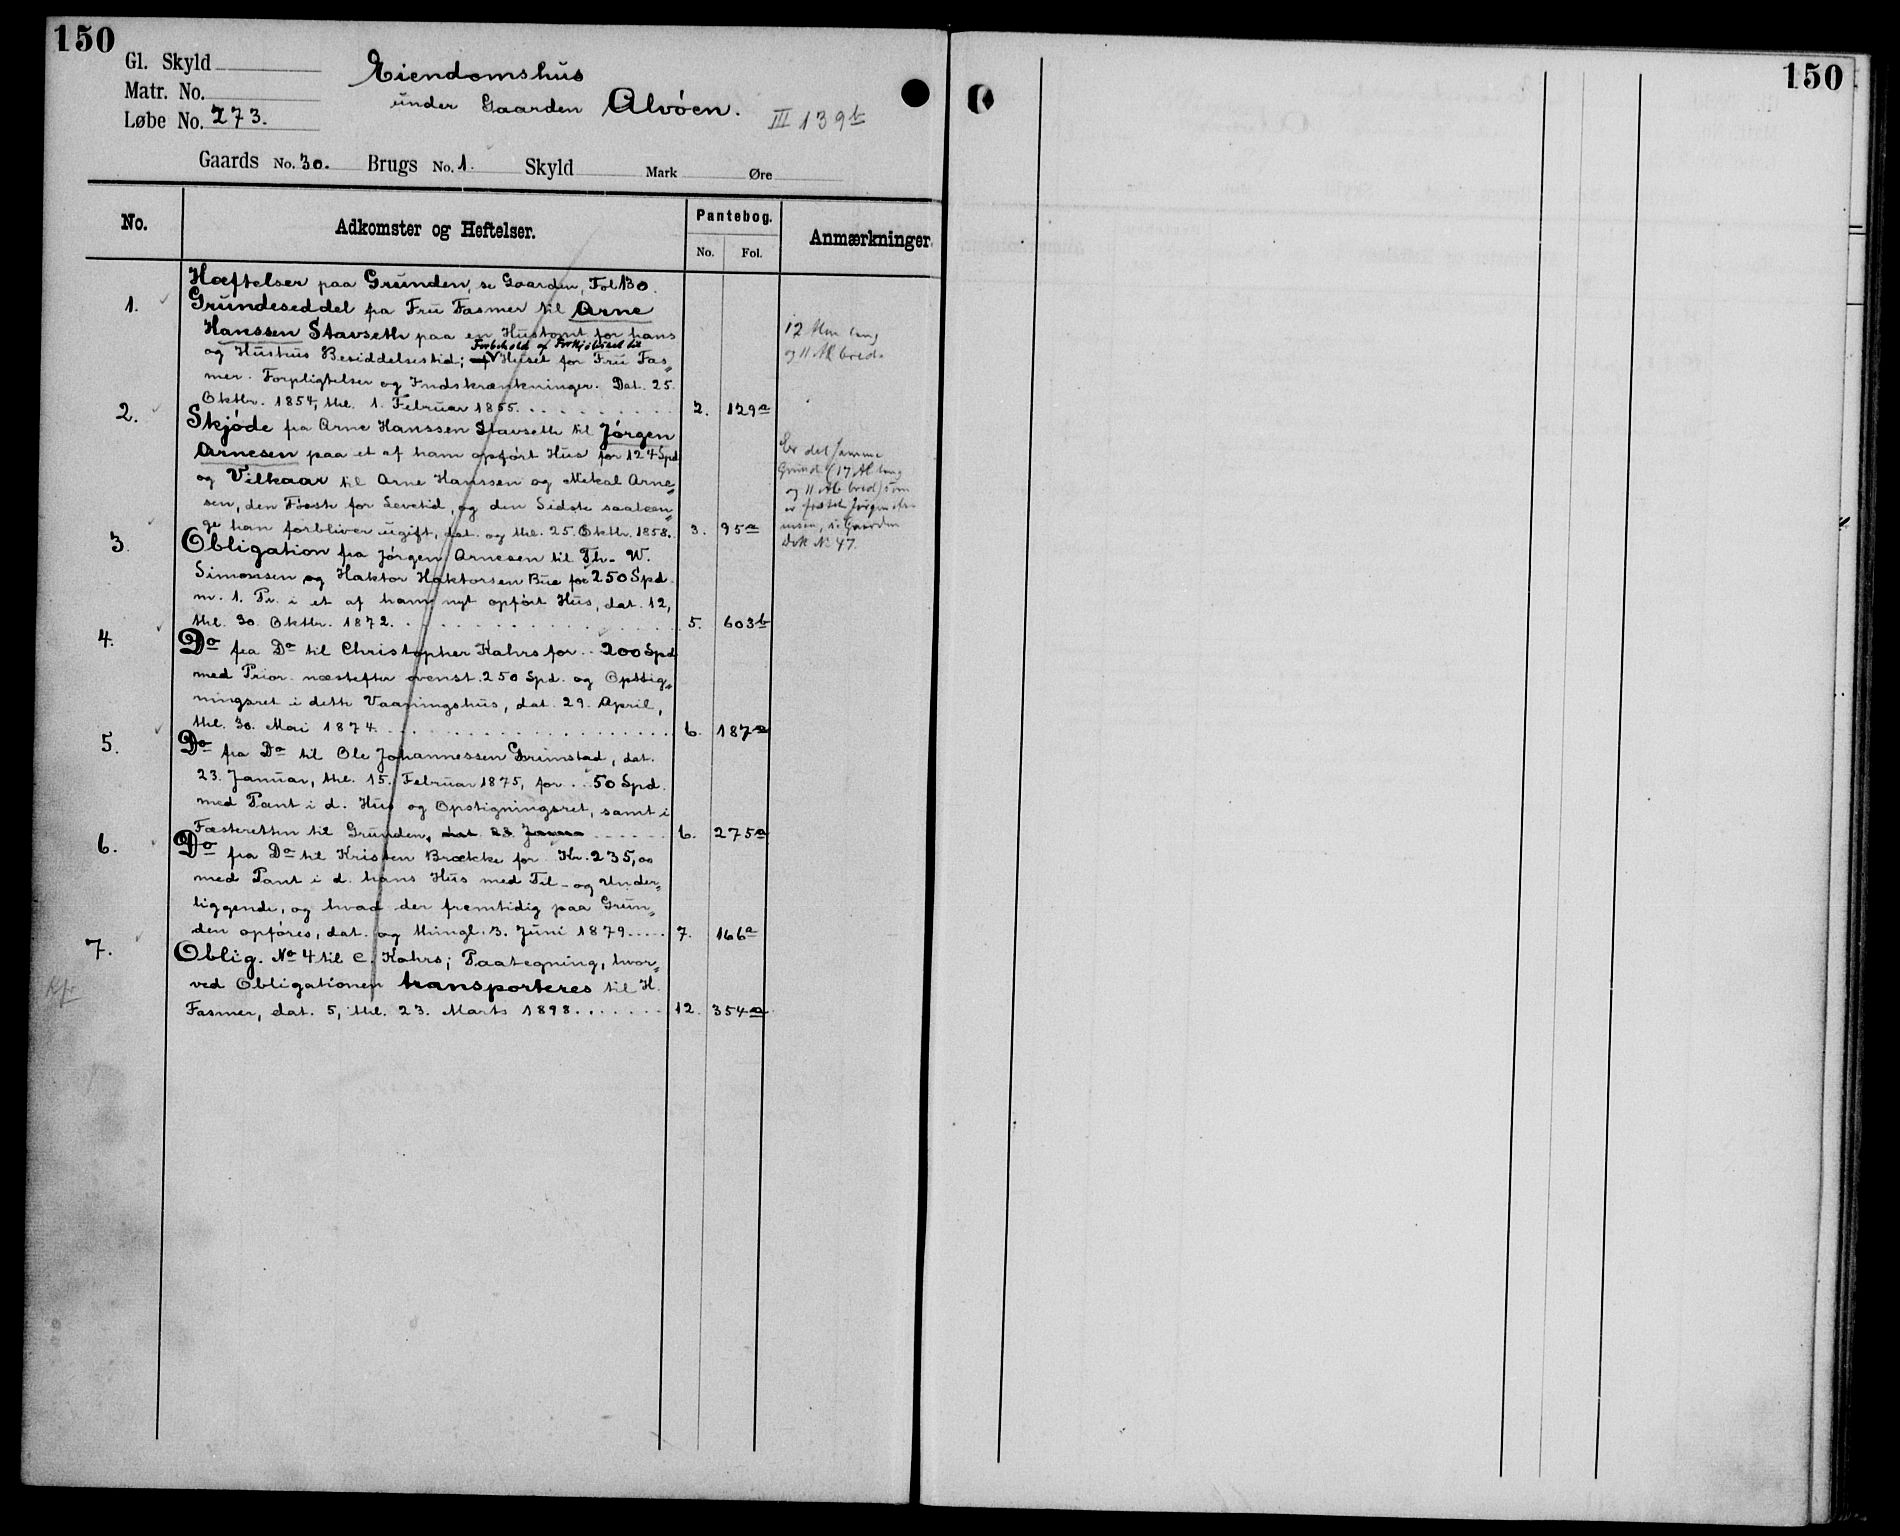 150
150
Gl. Skyld
Matr. No.
Løbe No. 273.
Eiendomshus
under Gaarden Alvöen.
III 139b
Gaards No. 30. Brugs No. 1. Skyld Mark Øre
No. Adkomster og Heftelser. Pantebog. Anmærkninger.
No. Fol.
Hæftelser paa Grunden, se Gaarden, Fol 130.
1. Grundeseddel fra Fru Fasmer til Arne
Hanssen Stavseth paa en Hustomt for hans
og Hustrus Besiddelsestid; Forbehold af Forkjöbsret til Huset for Fru Fas„
mer. Forpligtelser og Indskrænkninger. Dat. 25.
Oktbr. 1854, thl. 1. Februar 1855. 2. 129a
12 Alen lang
og 11 Al. bred.
2. Skjöde fra Arne Hanssen Stavseth til Jörgen
Arnesen paa et af ham opfört Hus for 124 Spd
og Vilkaar til Arne Hanssen og Mikal Arne„
sen, den Förste for Levetid, og den Sidste saalæn„
ge han forbliver ugift, dat. og thl. 25. Oktbr. 1858. 3. 95a
Er det samme
Grund (17 Al lang
og 11 Al. bred) som
er fæstet Jörgen Ar
nesen, se Gaarden
Dok No 47.
3. Obligation fra Jörgen Arnesen til Th. W.
Simonsen og Haktor Haktorsen Bue for 250 Spd.
m. 1. Pr. i et af ham nyt opfört Hus, dat. 12,
thl. 30. Oktbr. 1872. 5. 603b
4. Do fra Do til Christopher Kahrs for .. 200 Spd
med Prior. næstefter ovenst. 250 Spd. og Opstig„
ningsret i dette Vaaningshus, dat. 29. April,
thl. 30. Mai 1874. 6. 187a
5. Do fra Do til Ole Johannessen Grimstad, dat.
23. Januar, thl. 15. Februar 1875, for .. 50 Spd.
med Pant i d. Hus og Opstigningsret, samt i
Fæsteretten til Grunden, dat. 23. Januar 6. 275a
6. Do fra Do til Kristen Brække for Kr. 235,00
med Pant i d. hans Hus med Til- og Under„
liggende, og hvad der fremtidig paa Grun„
den opföres, dat. og thingl. 3. Juni 1879. 7. 166a
7. Oblig. No 4 til C. Kahrs; Paategning, hvor„
ved Obligationen transporteres til H.
Fasmer, dat. 5, thl. 23. Marts 1898. 12. 354a